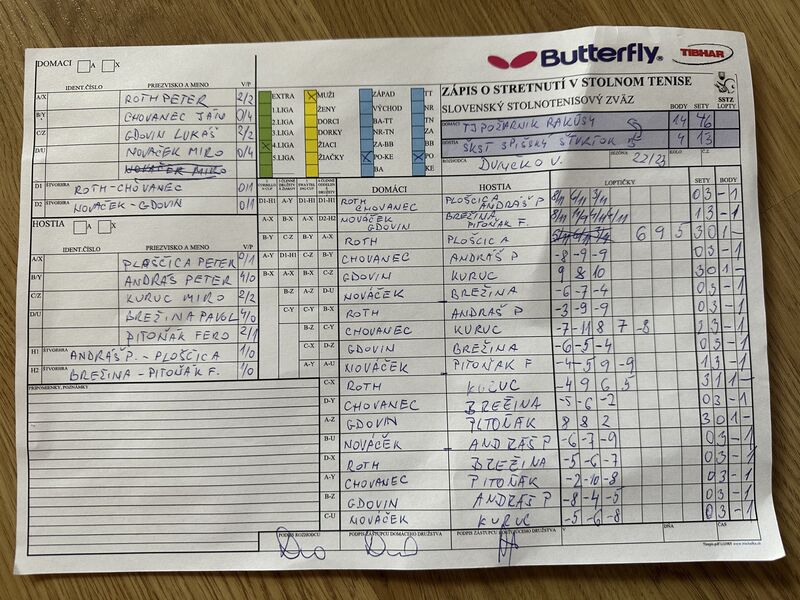 DOMACI A X
Butterfly. TIBHAR
IDENT.ČÍSLO PRIEZVISKO A MENO V/P
A/X ROTH PETER 2/2
B/Y CHOVANEC JÁN 0/4
C/Z GDOVIN LUKÁŠ 2/2
D/U NOVÁČEK MIRO 0/4
NOVÁČEK MIRO
D1 ŠTVORHRA ROTH - CHOVANEC 0/1
D2 ŠTVORHRA NOVÁČEK - GDOVIN 0/1
HOSTIA A X
IDENT.ČÍSLO PRIEZVISKO A MENO V/P
A/X PLOŠČICA PETER 0/1
B/Y ANDRÁŠ PETER 4/0
C/Z KURUC MIRO 2/2
D/U BREŽINA PAVOL 4/0
PITOŇÁK FERO 2/1
H1 ŠTVORHRA ANDRÁŠ P. - PLOŠČICA 1/0
H2 ŠTVORHRA BREŽINA - PITOŇÁK F. 1/0
PRIPOMIENKY, POZNÁMKY
EXTRA MUŽI ZÁPAD TT
1.LIGA ŽENY VÝCHOD NR
2.LIGA DORCI BA-TT TN
3.LIGA DORKY NR-TN ZA
4.LIGA ŽIACI ZA-BB BB
5.LIGA ŽIAČKY PO-KE PO
BA KE
ZÁPIS O STRETNUTÍ V STOLNOM TENISE
SLOVENSKÝ STOLNOTENISOVÝ ZVÄZ SSTZ
BODY SETY LOPTY
DOMÁCI TJ POŽARNIK RAKÚSY 14 46
HOSTIA ŠKST SPIŠSKÝ ŠTVRTOK 4 13
ROZHODCA SEZÓNA 22/23 KOLO Č.Z.
DOMÁCI HOSTIA LOPTIČKY SETY BODY
D1-H1 A-Y D1-H1 D1-H1 ROTH CHOVANEC PLOŠČICA ANDRÁŠ P 03-1
A-X B-X A-X D2-H2 NOVÁČEK GDOVIN BREŽINA PITOŇÁK F. 13-1
B-Y C-Z B-Y A-X ROTH PLOŠČICA 6 9 5 301-
C-Z A-X D1-H1 B-Y CHOVANEC ANDRÁŠ P -8 -9 -9 03-1
B-X A-X B-X C-Z GDOVIN KURUC 9 8 10 301-
B-Z A-Z D-U NOVÁČEK BREŽINA -6 -7 -4 03-1
C-Y C-Y B-X ROTH ANDRÁŠ P -3 -9 -9 03-1
B-Z C-Y CHOVANEC KURUC -7 -11 8 7 -8 23-1
C-X D-Z GDOVIN BREŽINA -6 -5 -4 03-1
A-Y A-U NOVÁČEK PITOŇÁK F -4 -5 9 -9 13-1
C-X ROTH KURUC -4 9 6 5 311-
D-Y CHOVANEC BREŽINA -5 -6 -2 03-1
A-Z GDOVIN PITOŇÁK 8 8 2 301-
B-U NOVÁČEK ANDRÁŠ P -6 -7 -9 03-1
D-X ROTH BREŽINA -5 -6 -7 03-1
A-Y CHOVANEC PITOŇÁK -2 -10 -8 03-1
B-Z GDOVIN ANDRÁŠ P -8 -4 -5 03-1
C-U NOVÁČEK KURUC -5 -6 -8 03-1
PODPIS ROZHODCU PODPIS ZÁSTUPCU DOMÁCEHO DRUŽSTVA PODPIS ZÁSTUPCU HOSTUJÚCEHO DRUŽSTVA V DŇA ČAS